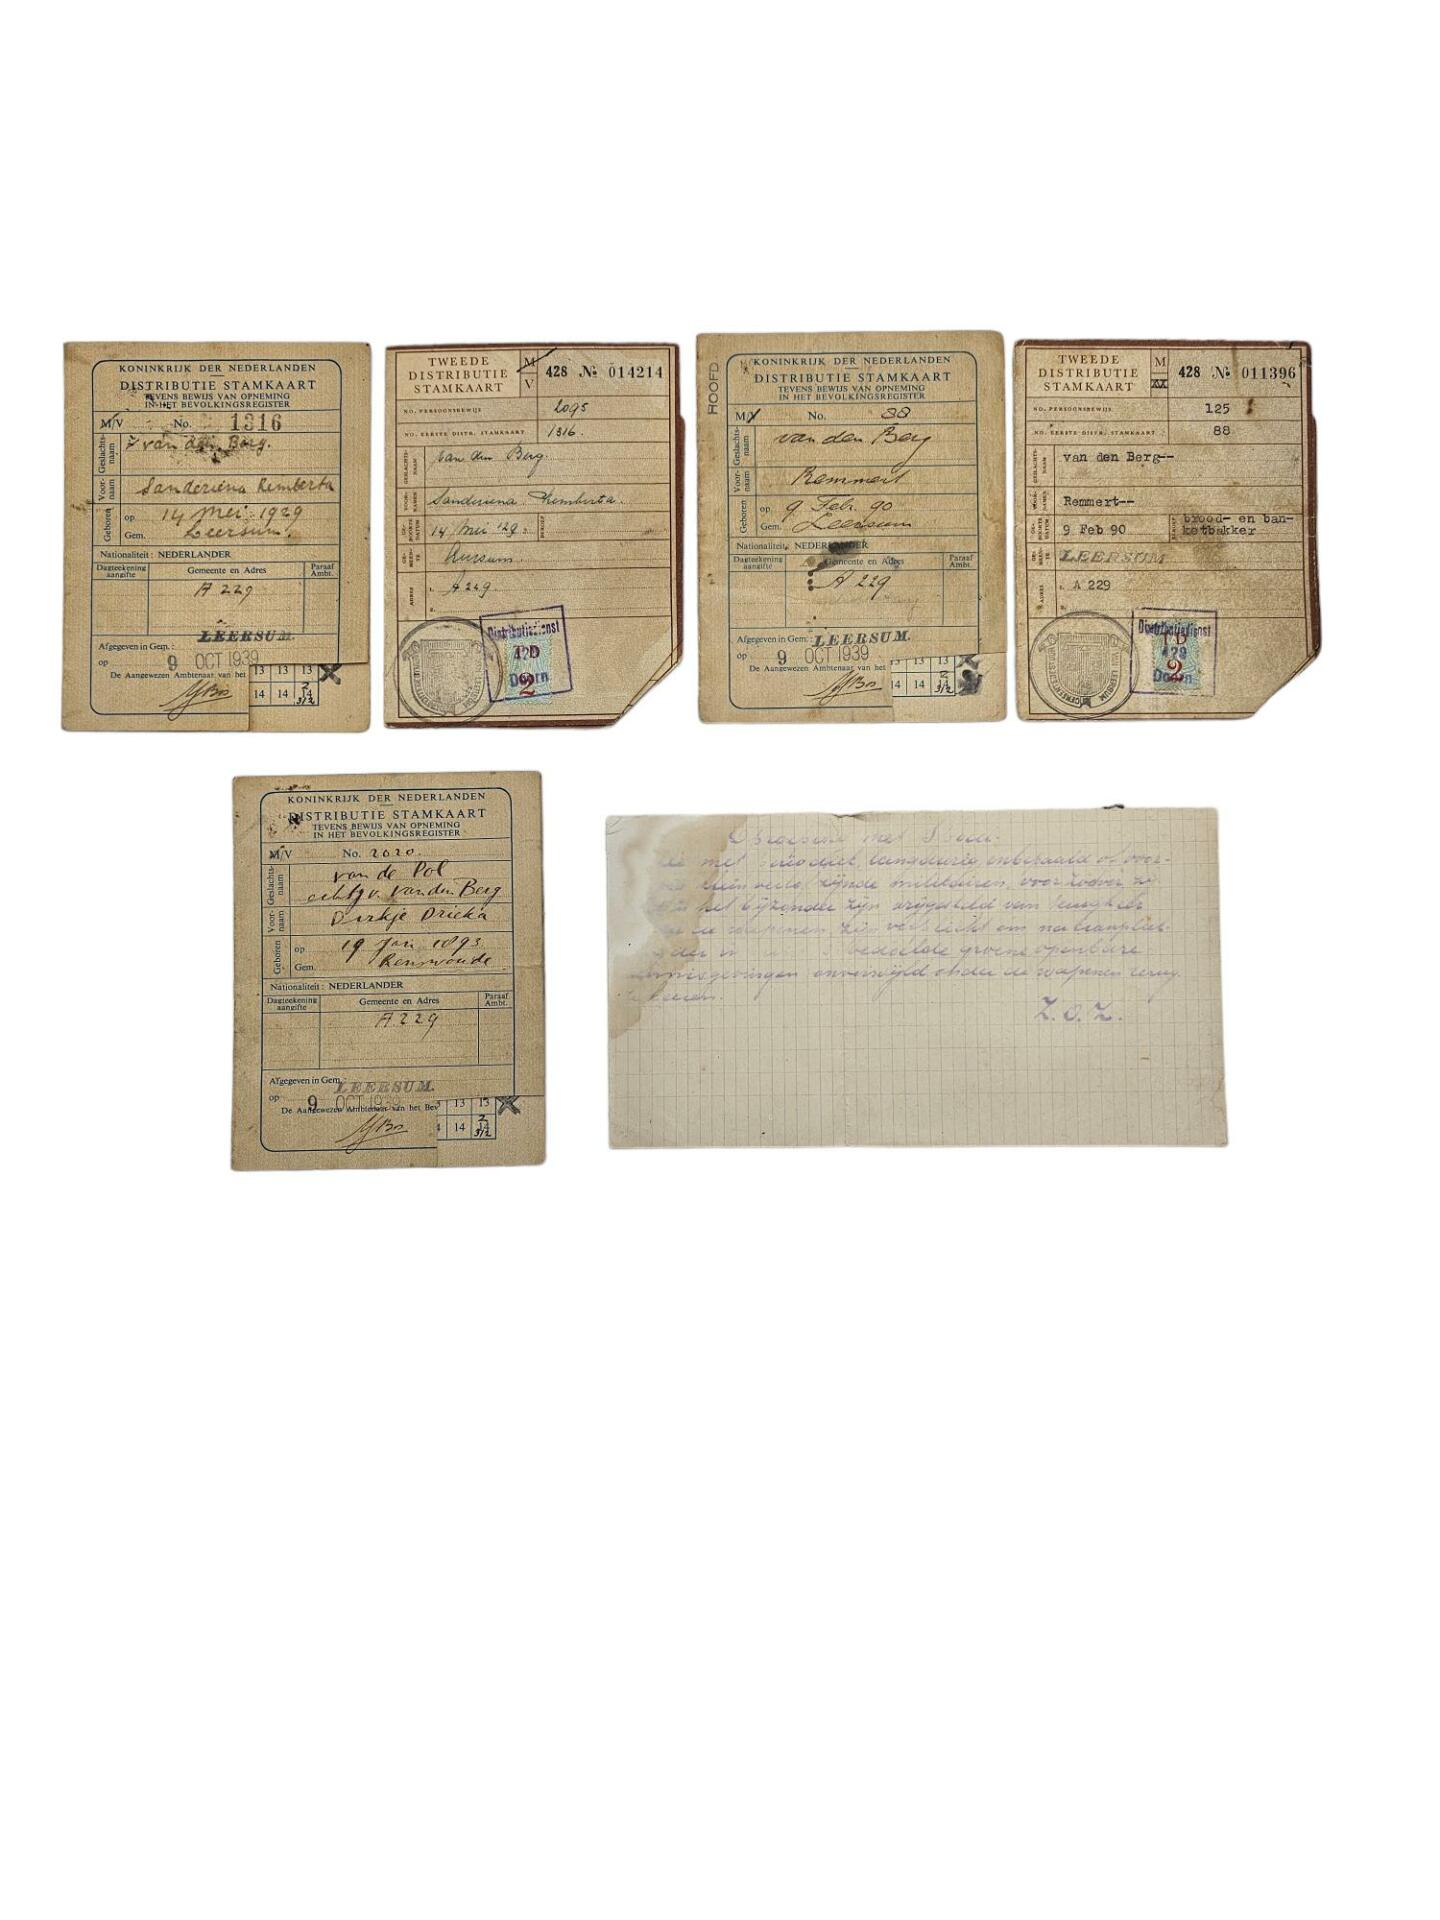 KONINKRIJK DER NEDERLANDEN
DISTRIBUTIE STAMKAART
TEVENS BEWIJS VAN OPNEMING
IN HET BEVOLKINGSREGISTER
M/V No. 1316
Geslachts-
naam
van den Berg.
Voor-
naam
Sanderiena Remberta
Geboren
op 14 Mei 1929
Gem. Leersum.
Nationaliteit: NEDERLANDER
Dagteekening
aangifte
Gemeente en Adres
Paraaf
Ambt.
A 229
Afgegeven in Gem.: LEERSUM.
op 9 OCT 1939
De Aangewezen Ambtenaar van het
13 13 13
14 14 14
2
3/2
TWEEDE
DISTRIBUTIE
STAMKAART
M
V
428 No 014214
NO. PERSOONSBEWIJS 2095
NO. EERSTE DISTR. STAMKAART 1316.
GESLACHTS-
NAAM
van den Berg.
VOOR-
NAMEN
Sanderiena Remberta.
GE-
BOORTE
DATUM
14 Mei '29.
BEROEP
GE-
MEEN-
TE
Leersum.
ADRES
1. A 229.
2.
Distributiedienst
Doorn
TD
2
KONINKRIJK DER NEDERLANDEN
DISTRIBUTIE STAMKAART
TEVENS BEWIJS VAN OPNEMING
IN HET BEVOLKINGSREGISTER
M/V No. 88
Geslachts-
naam
van den Berg
Voor-
naam
Remmert
Geboren
op 9 Febr. 90
Gem. Leersum
Nationaliteit: NEDERLANDER
Dagteekening
aangifte
Gemeente en Adres
Paraaf
Ambt.
A 229
Afgegeven in Gem.: LEERSUM.
op 9 OCT 1939
De Aangewezen Ambtenaar van het
13 13
14 14 14
2
3/2
TWEEDE
DISTRIBUTIE
STAMKAART
M
428 No 011396
NO. PERSOONSBEWIJS 125
NO. EERSTE DISTR. STAMKAART 88
GESLACHTS-
NAAM
van den Berg--
VOOR-
NAMEN
Remmert--
GE-
BOORTE
DATUM
9 Feb 90
BEROEP
brood- en ban-
ketbakker
GE-
MEEN-
TE
LEERSUM
ADRES
1. A 229
2.
Distributiedienst
Doorn
TD
2
KONINKRIJK DER NEDERLANDEN
DISTRIBUTIE STAMKAART
TEVENS BEWIJS VAN OPNEMING
IN HET BEVOLKINGSREGISTER
M/V No. 2020.
Geslachts-
naam
van de Pol
echtg v. van den Berg
Voor-
naam
Dirkje Drieka
Geboren
op 19 Jan 1893
Gem. Renswoude
Nationaliteit: NEDERLANDER
Dagteekening
aangifte
Gemeente en Adres
Paraaf
Ambt.
A 229
Afgegeven in Gem.: LEERSUM.
op 9 OCT 1939
De Aangewezen Ambtenaar van het Bev
13 13
14 14
2
3/2
met langdurig, onbepaald of voor-
zijnde militairen, voor zoover zij
het bijzonder zijn vrijgesteld van
de wapenen, zijn verplicht om na
in groene openbare
onverwijld onder de wapenen terug
te keeren.
Z.O.Z.